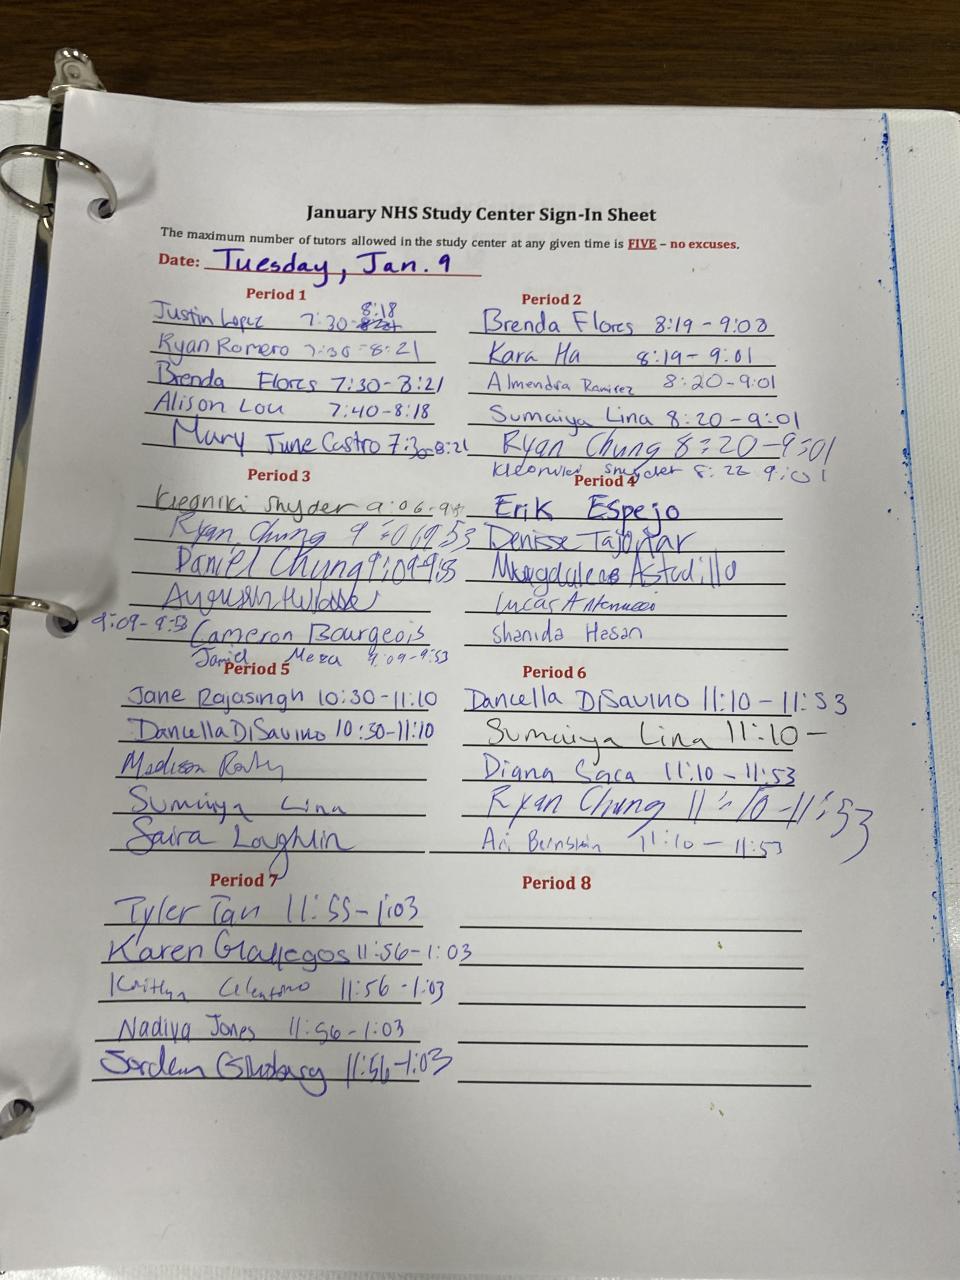 January NHS Study Center Sign-In Sheet
The maximum number of tutors allowed in the study center at any given time is FIVE – no excuses.
Date: Tuesday, Jan. 9
Period 1
Justin Lopez 7:30- 8:18
Ryan Romero 7:30-8:21
Brenda Flores 7:30-8:21
Alison Lou 7:40-8:18
Mary June Castro 7:30-8:21
Period 2
Brenda Flores 8:19-9:03
Kara Ha 8:19-9:01
Almendra Ramirez 8:20-9:01
Sumaiya Lina 8:20-9:01
Ryan Chung 8:20-9:01
Kleoniki Snyder 8:22 9:01
Period 3
Kleoniki Snyder 9:06-
Ryan Chung
Daniel Chung 9:09-9:53
9:09-9:53 Cameron Bourgeois
Meza 9:09-9:53
Period 4
Erik Espejo
Denisse
Magdalena Astudillo
Lucas Antonucci
Shanida Hasan
Period 5
Jane Rajasingh 10:30-11:10
Dancella DiSavino 10:30-11:10
Madison
Sumaiya Lina
Saira Loughlin
Period 6
Dancella DiSavino 11:10-11:53
Sumaiya Lina 11:10-
Diana Saca 11:10-11:53
Ryan Chung 11:10-11:53
Ari Bernstein 11:10-11:53
Period 7
Tyler Tan 11:55-1:03
Karen Gallegos 11:56-1:03
Kaitlyn 11:56-1:03
Nadiya Jones 11:56-1:03
Jordan 11:56-1:03
Period 8